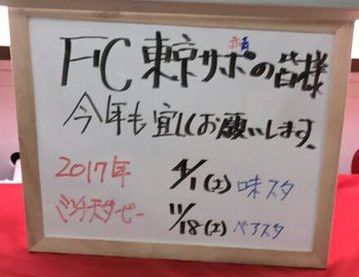 赤青
FC東京サポの皆様
今年も宜しくお願いします。
2017年
ダービー
4/1(土) 味スタ
11/18(土) ベアスタ